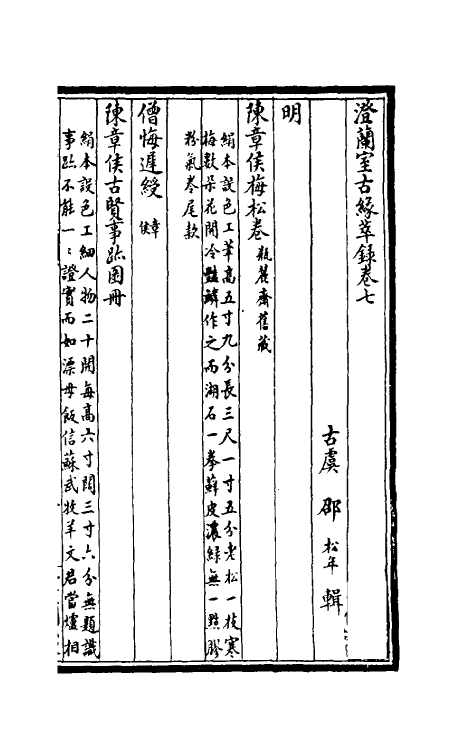 澄蘭室古緣萃錄卷七
古虞 邵松年 輯
明
陳章侯梅松卷 瓶麓齋舊藏
絹本設色工筆高五寸九分長三尺一寸五分老松一枝寒
梅數朵花開冷豔蘚作之而湖石一拳蘚皮濃綠無一點膠
粉氣卷尾款
僧悔遲綬 章侯
陳章侯古賢事蹟圖冊
絹本設色工細人物二十開每高六寸闊三寸六分無題識
事蹟不能一〻證實而如漂母飯信蘇武牧羊文君當壚相